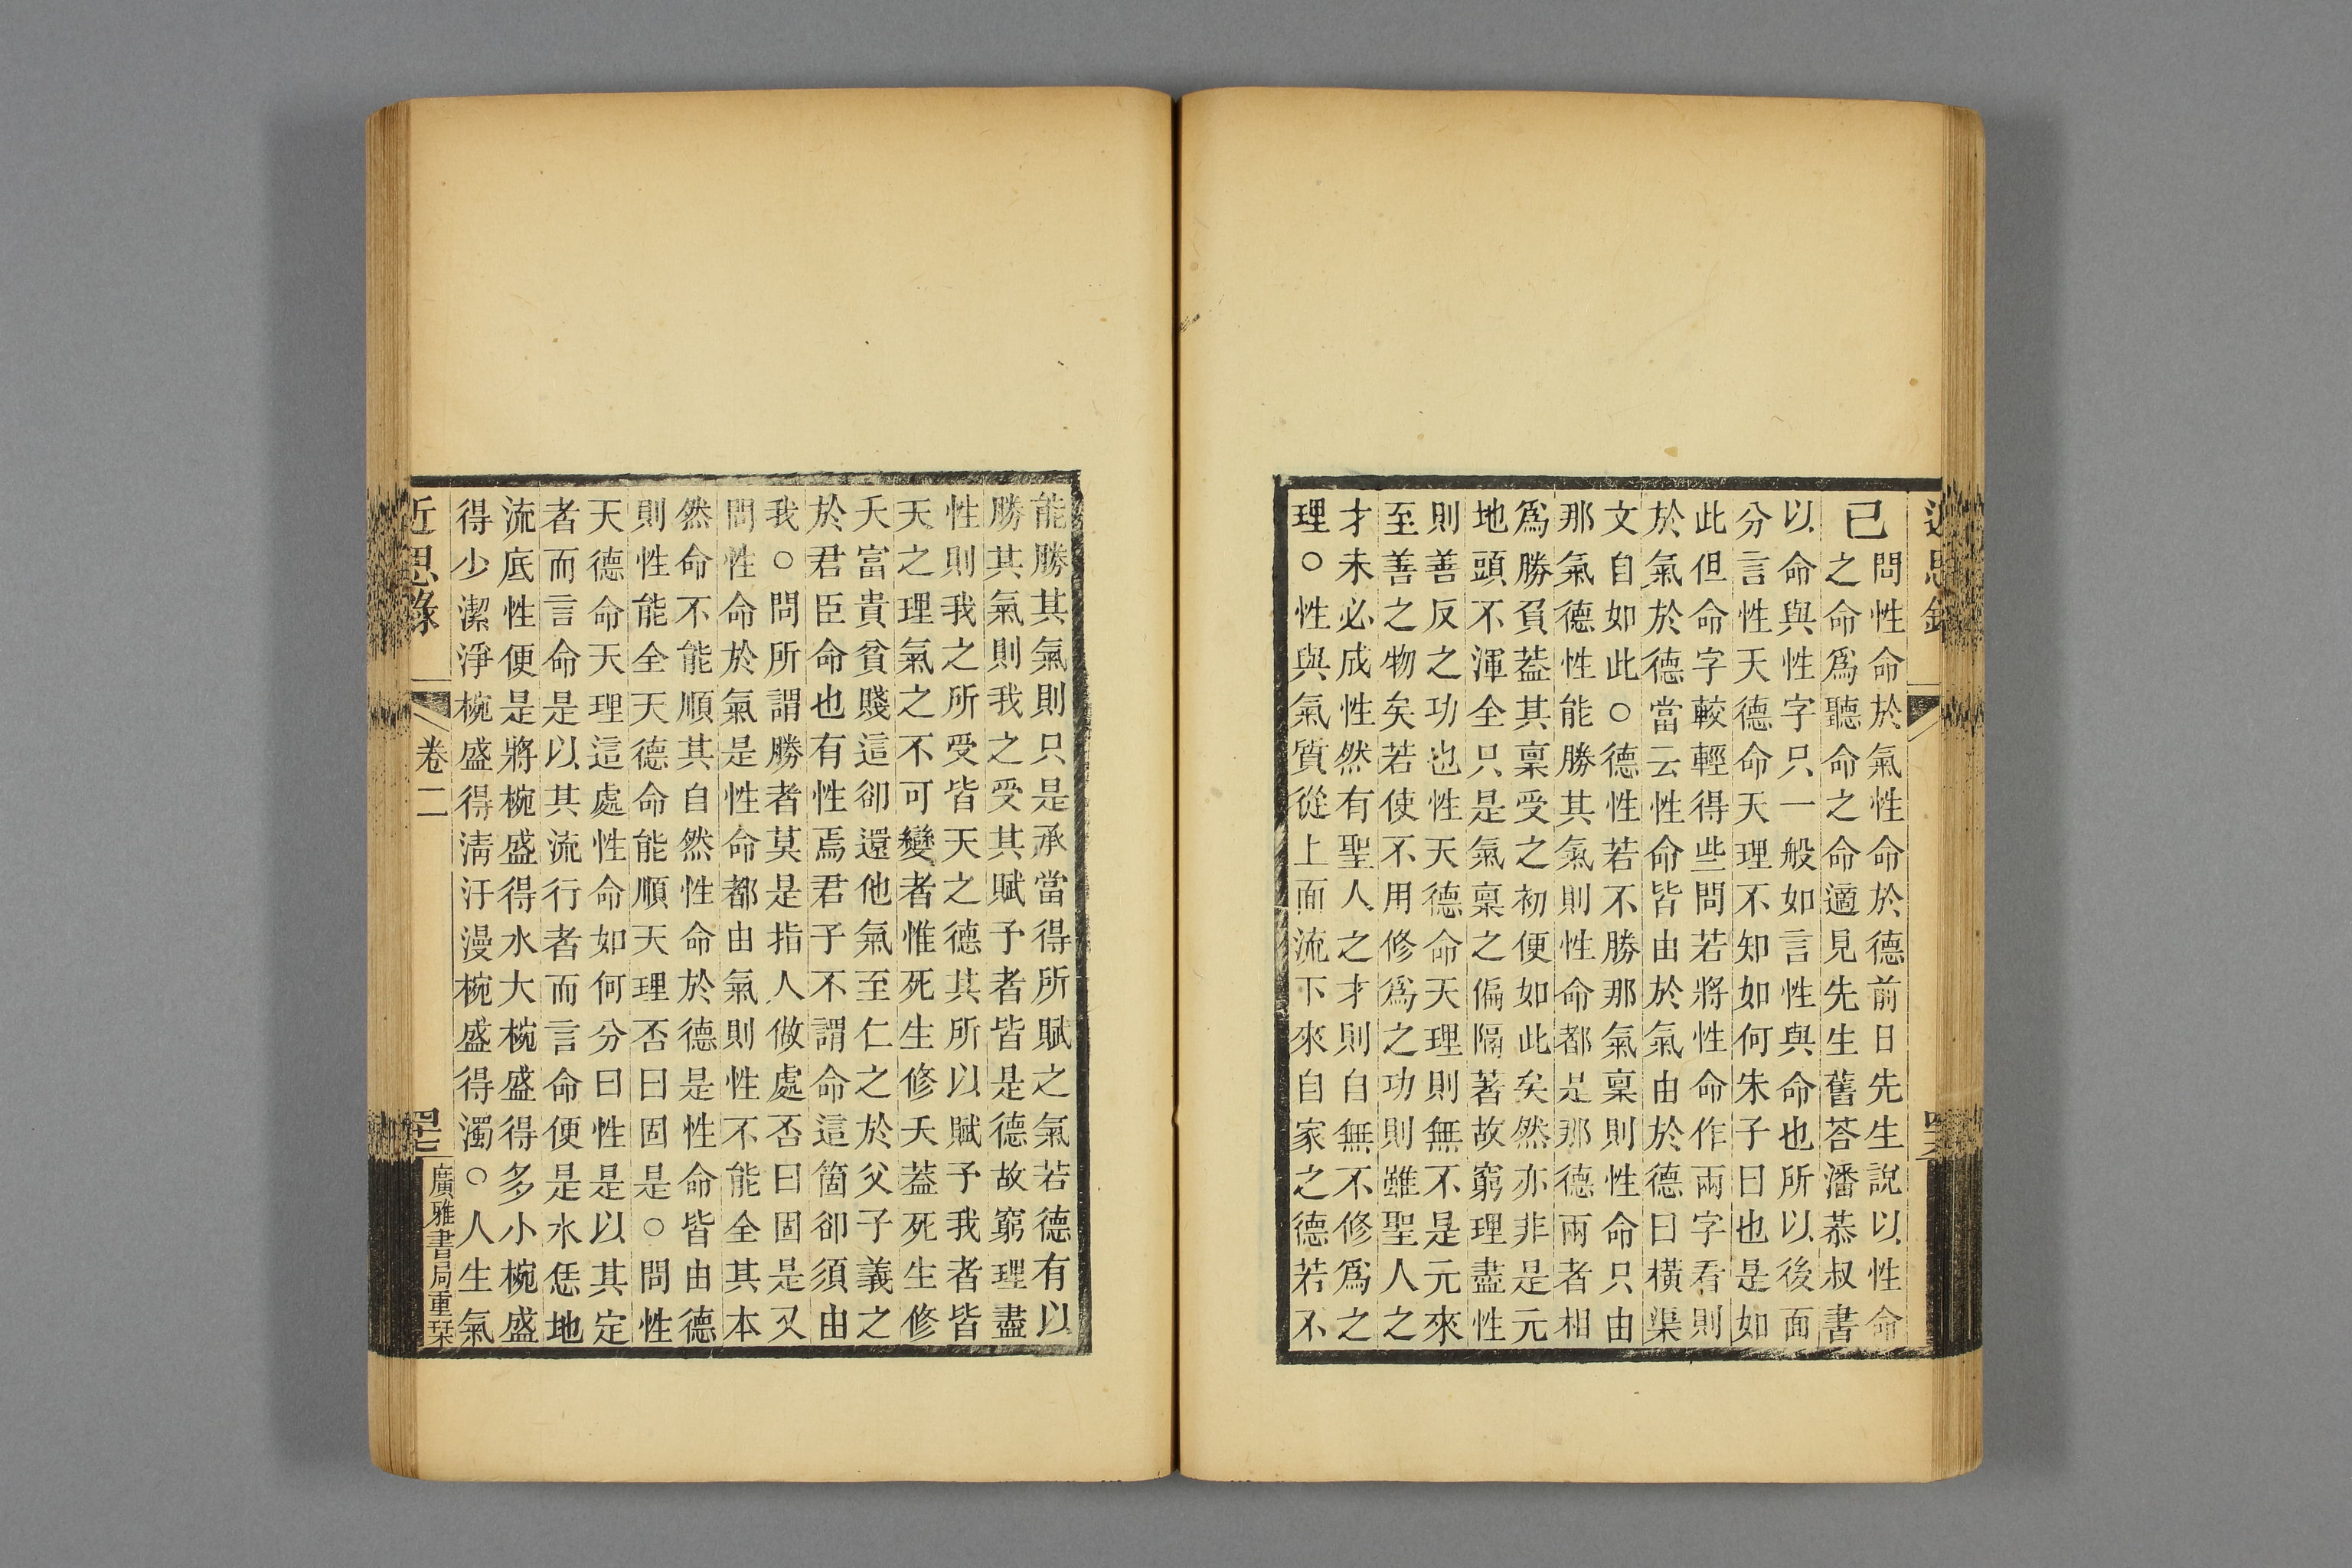 近思錄
已
問性命於氣性命於德前日先生說以性命
之命爲聽命之命適見先生舊荅潘恭叔書
以命與性字只一般如言性與命也所以後面
分言性天德命天理不知如何朱子曰也是如
此但命字較輕得些問若將性命作兩字看則
於氣於德當云性命皆由於氣由於德曰橫渠
文自如此○德性若不勝那氣稟則性命只由
那氣德性能勝其氣則性命都是那德兩者相
爲勝負葢其稟受之初便如此矣然亦非是元
地頭不渾全只是氣稟之偏隔著故窮理盡性
則善反之功也性天德命天理則無不是元來
至善之物矣若使不用修爲之功則雖聖人之
才未必成性然有聖人之才則自無不修爲之
理○性與氣質從上面流下來自家之德若不
能勝其氣則只是承當得所賦之氣若德有以
勝其氣則我之受其賦予者皆是德故窮理盡
性則我之所受皆天之德其所以賦予我者皆
天之理氣之不可變者惟死生修夭葢死生修
夭富貴貧賤這卻還他氣至仁之於父子義之
於君臣命也有性焉君子不謂命這箇卻須由
我○問所謂勝者莫是指人做處否曰固是又
問性命於氣是性命都由氣則性不能全其本
然命不能順其自然性命於德是性命皆由德
則性能全天德命能順天理否曰固是○問性
天德命天理這處性命如何分曰性是以其定
者而言命是以其流行者而言命便是水恁地
流底性便是將椀盛得水大椀盛得多小椀盛
得少潔淨椀盛得淸汙漫椀盛得濁○人生氣
近思錄
卷二
四七
廣雅書局重栞